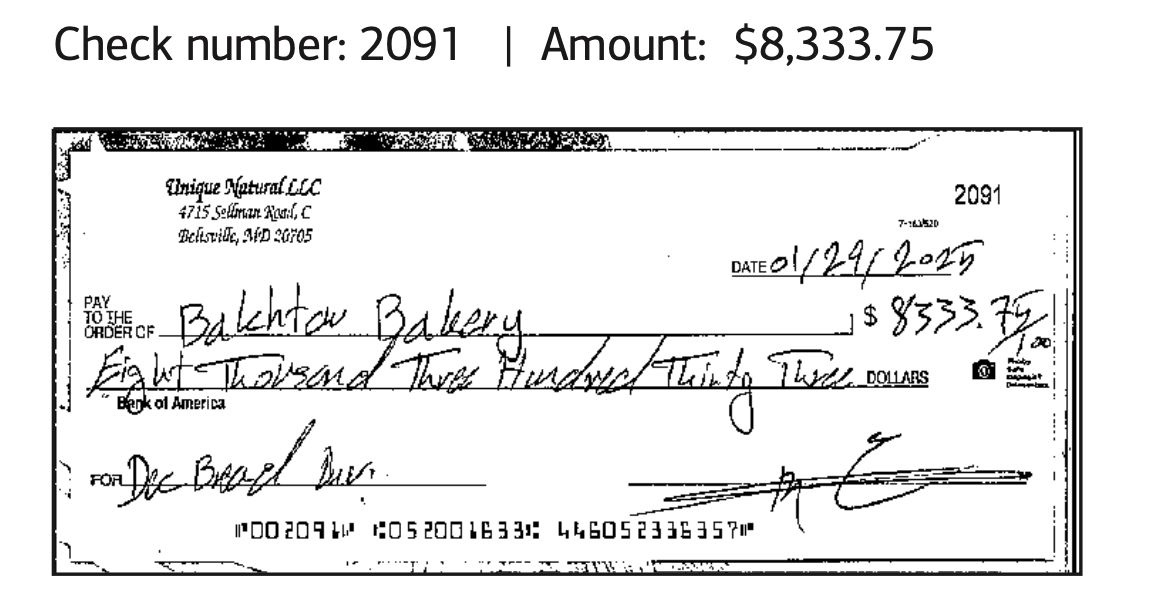 Check number: 2091 | Amount: $8,333.75
Unique Natural LLC
2091
4715 Sellman Road, C
Beltsville, MD 20705
DATE 01/29/2025
PAY TO THE ORDER OF Bakhtar Bakery $ 8333.75/100
Eight Thousand Three Hundred Thirty Three DOLLARS
Bank of America
FOR Dec Bread
⑈002091⑈ ⑆052001633⑆ 446052336357⑈